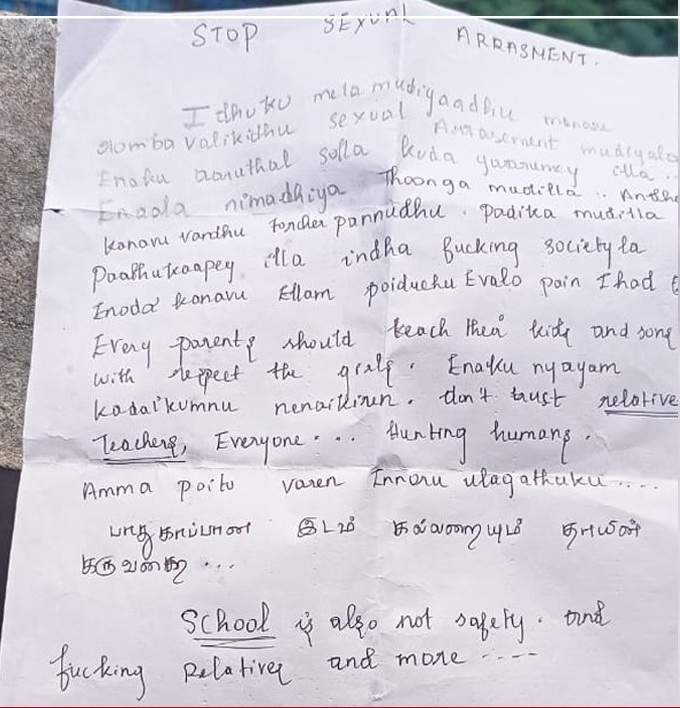 STOP SEXUAL ARRASMENT.
Idhuku mela mudiyaadhu manasu
romba valikidhu sexual Arrasement mudiyala
Enaku aaruthal solla kuda yaarumey illa..
Enaala nimadhiya Thoonga mudilla.. Antha
kanavu vandhu torcher pannudhu. Padika mudilla
Paadhukaapey illa indha fucking society la
Enoda kanavu Ellam poiduchu Evalo pain I had
Every parents should teach their kids and sons
with respect the girls. Enaku nyayam
kadaikumnu nenaikiren. don't trust relative
Teachers, Everyone.... Hunting humans.
Amma poitu varen Innoru ulagathuku.....
பாதுகாப்பான இடம் கல்லறையும் தாயின்
கருவறை...
School is also not safety. and
fucking Relatives and more .....